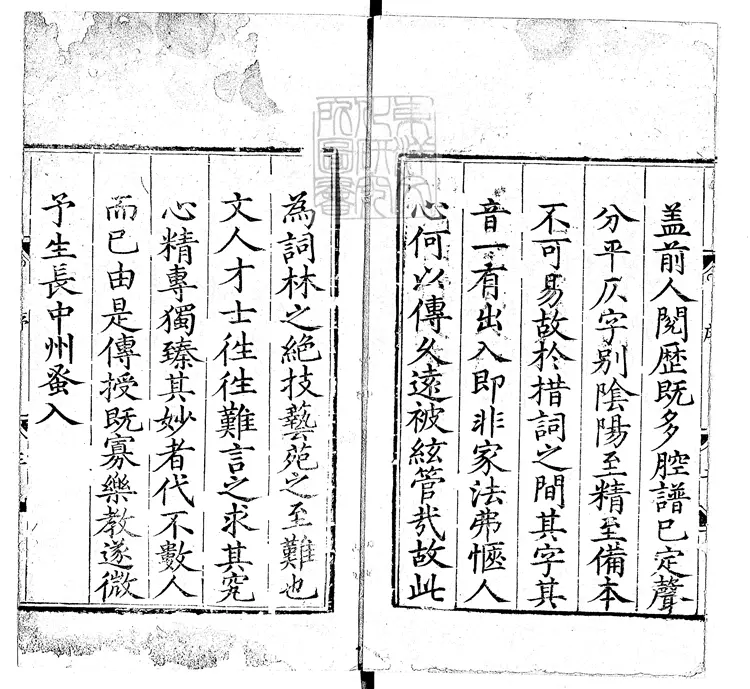 盖前人閱歷既多腔譜已定聲
分平仄字别陰陽至精至備本
不可易故於措詞之間其字其
音一有出入即非家法弗愜人
心何以傳久遠被絃管㢤故此
為詞林之絶技藝苑之至難也
文人才士徃徃難言之求其究
心精專獨臻其妙者代不數人
而已由是傳授既寡樂教遂微
予生長中州蚤入
序